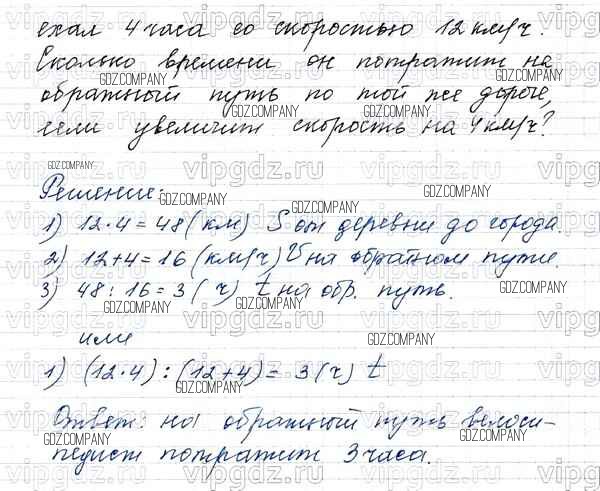 ехал 4 часа со скоростью 12 км/ч.
Сколько времени он потратит на
обратный путь по той же дороге,
если увеличит скорость на 4 км/ч?
Решение:
1) 12·4=48 (км) S от деревни до города.
2) 12+4=16 (км/ч) V на обратном пути.
3) 48:16=3 (ч) t на обр. путь.
или
1) (12·4):(12+4)= 3 (ч) t
Ответ: на обратный путь велоси-
педист потратит 3 часа.
vipgdz.ru
GDZ.COMPANY